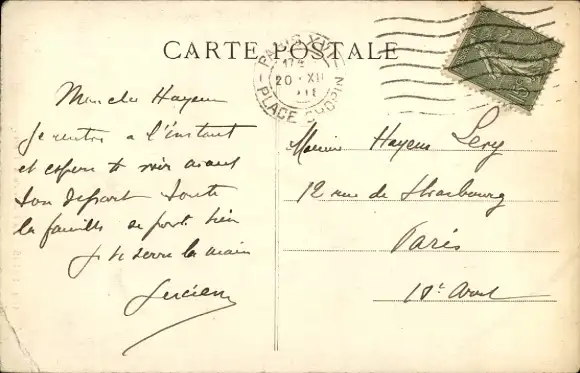 CARTE POSTALE
PARIS XVI
17
20 · XII
PLACE CHOPIN
Mon cher Hayem
Je rentre à l'instant
et espère te voir avant
ton départ Toute
la famille se porte bien
Je te serre la main
Lucien
Monsieur Hayem Levy
12 rue de Strasbourg
Paris
10e Arrt